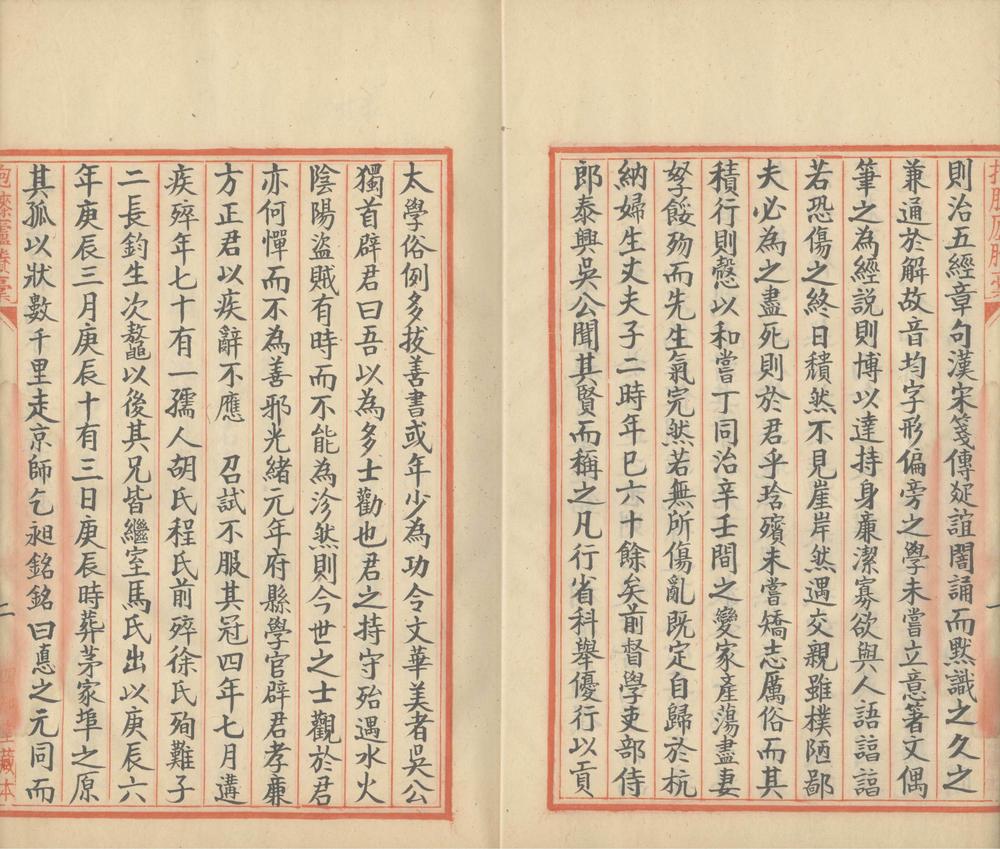 則治五經章句漢宋箋傳疑誼闇誦而默識之久之
兼通於解故音均字形偏旁之學未嘗立意箸文偶
筆之為經説則博以達持身廉潔寡欲與人語諳諳
若恐傷之終日穨然不見崖岸然遇交親雖樸陋鄙
夫必為之盡死則於君乎琀殯未嘗矯志厲俗而其
積行則愨以和嘗丁同治辛壬間之變家產蕩盡妻
孥餒殀而先生氣完然若無所傷亂既定自歸於杭
納婦生丈夫子二時年已六十餘矣前督學吏部侍
郎泰興吳公聞其賢而稱之凡行省科舉優行以貢
太學俗例多拔善書或年少為功令文華美者吳公
獨首辟君曰吾以為多士勸也君之持守殆遇水火
陰陽盜賊有時而不能為沴然則今世之士觀於君
亦何憚而不為善邪光緒元年府縣學官辟君孝廉
方正君以疾辭不應 召試不服其冠四年七月遘
疾猝年七十有一孺人胡氏程氏前猝徐氏殉難子
二長鈞生次鼇以後其兄皆繼室馬氏出以庚辰六
年庚辰三月庚辰十有三日庚辰時葬茅家埠之原
其孤以狀數千里走京師乞昶銘銘曰悳之元同而
二
藏本